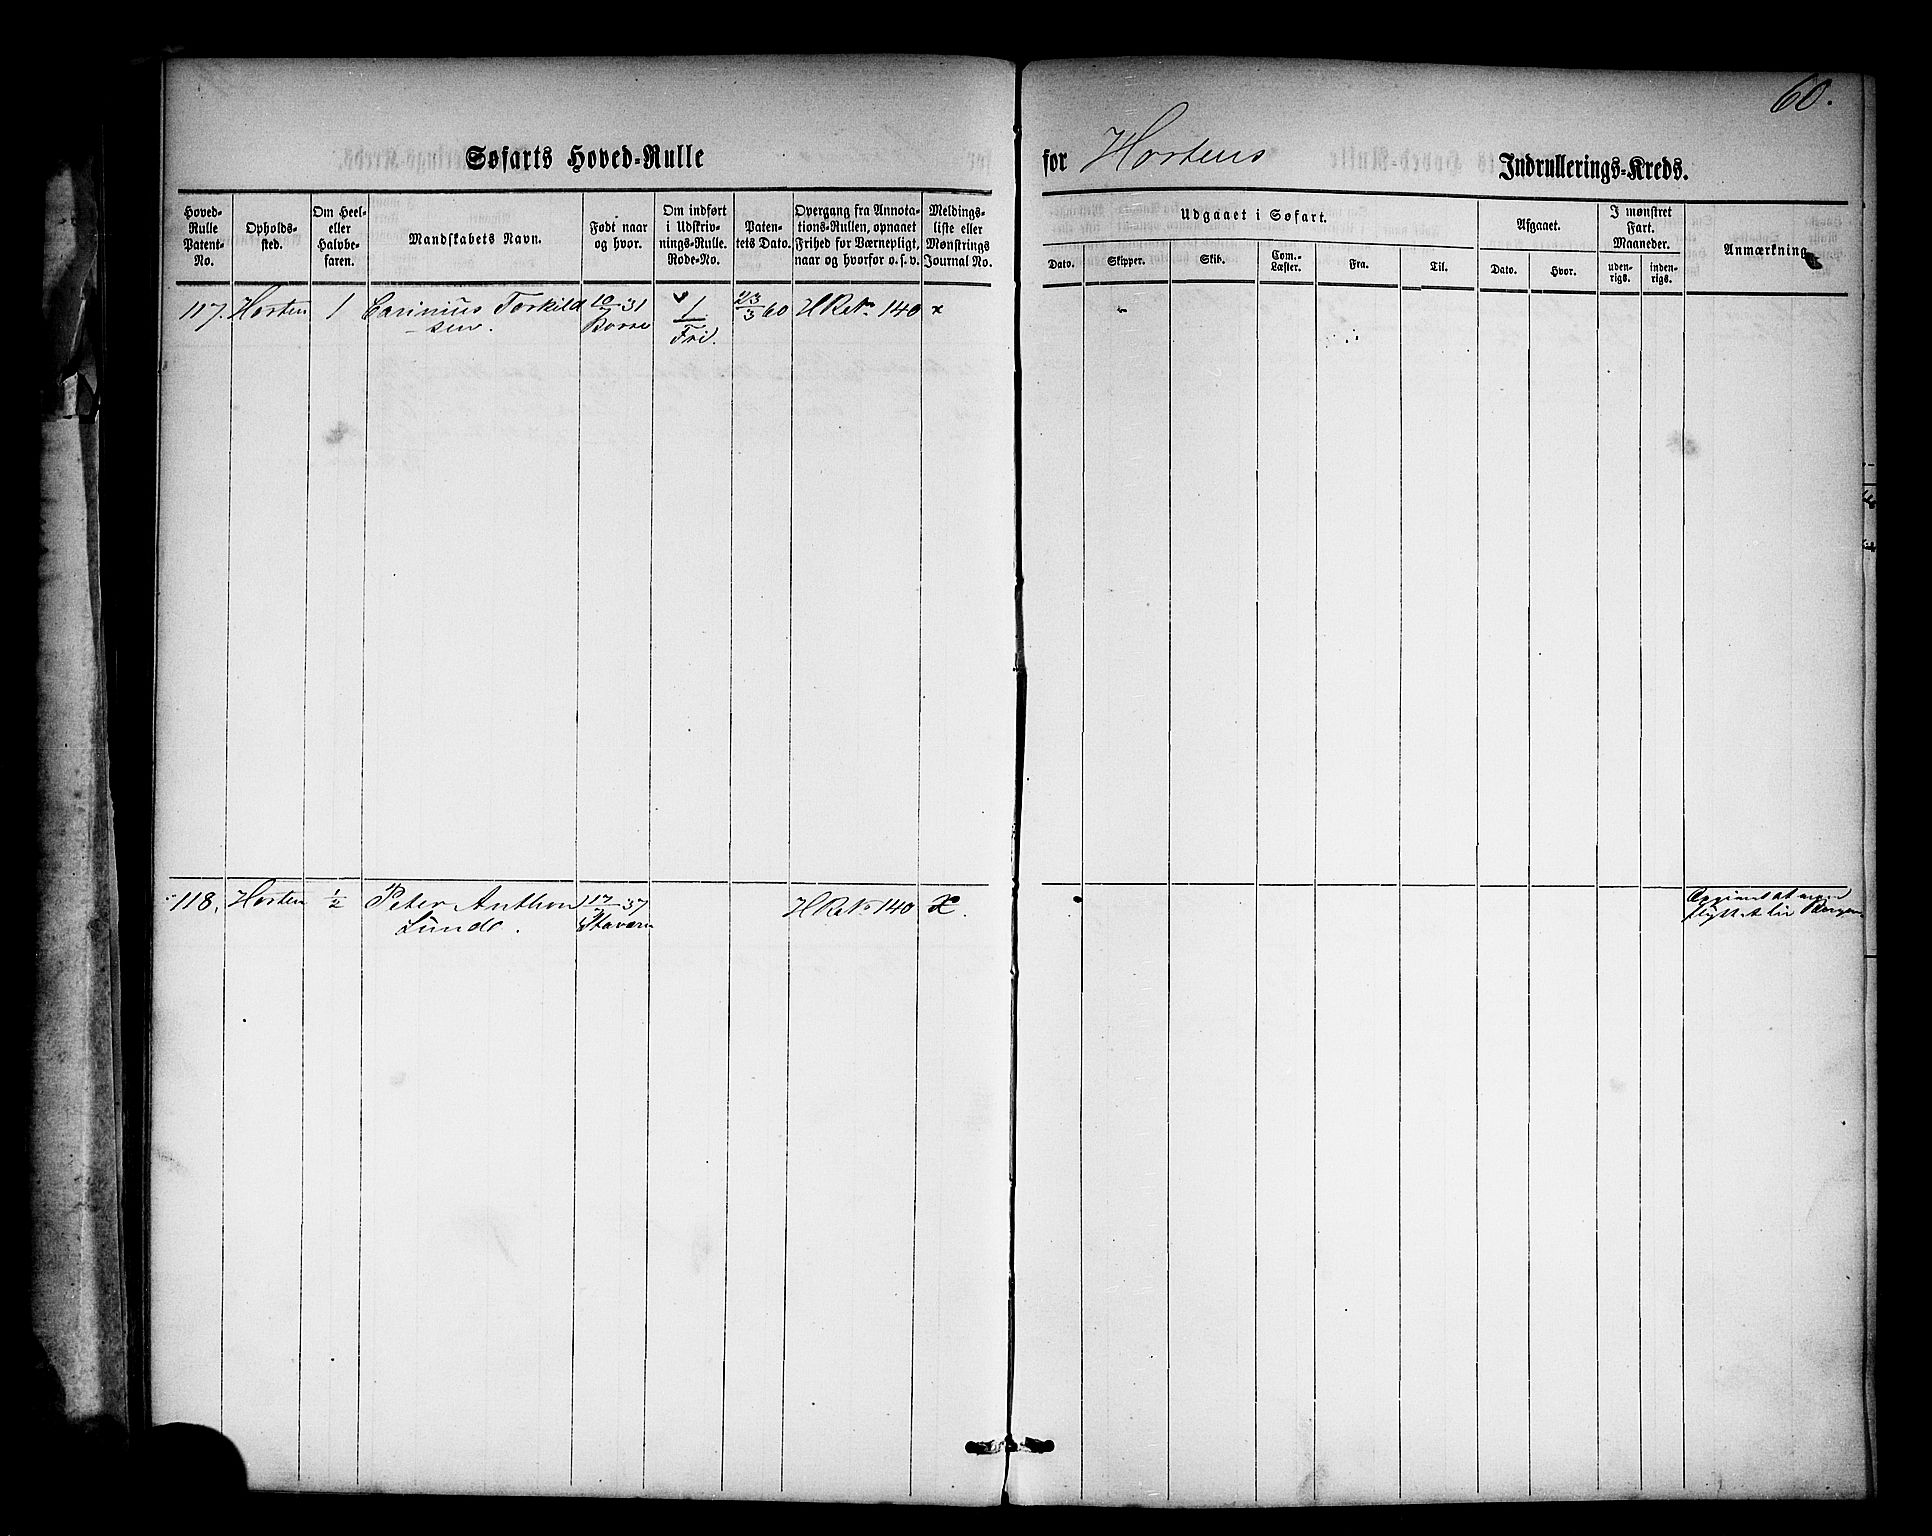 60.
Søfarts Hoved-Rulle for Hortens Indrullerings-Kreds.
Hoved-
Rulle
Patent-
No.
Opholds-
sted.
Om Heel-
eller
Halvbe-
faren.
Mandskabets Navn.
Født naar
og hvor.
Om indført
i Udskriv-
nings-Rulle.
Rode-No.
Paten-
tets Dato.
Overgang fra Annota-
tions-Rullen, opnaaet
Frihed for Værnepligt,
naar og hvorfor o. s. v.
Meldings-
liste eller
Mønstrings
Journal No.
Udgaaet i Søfart.
Dato.
Skipper.
Skib.
Com.-
Læster.
Fra.
Til.
Afgaaet.
Dato.
Hvor.
I mønstret
Fart.
Maaneder.
uden-
rigs.
inden-
rigs.
Anmærkning.
117. Horten 1 Carinius Torkild 10/7 31 1 23/3 60 H R No 140 x
sen. Borre Fri.
118. Horten 1/2 Peter Anthon 17/ 37 H R No 140 X.
Lund. Stavern
flyttet til Bergen